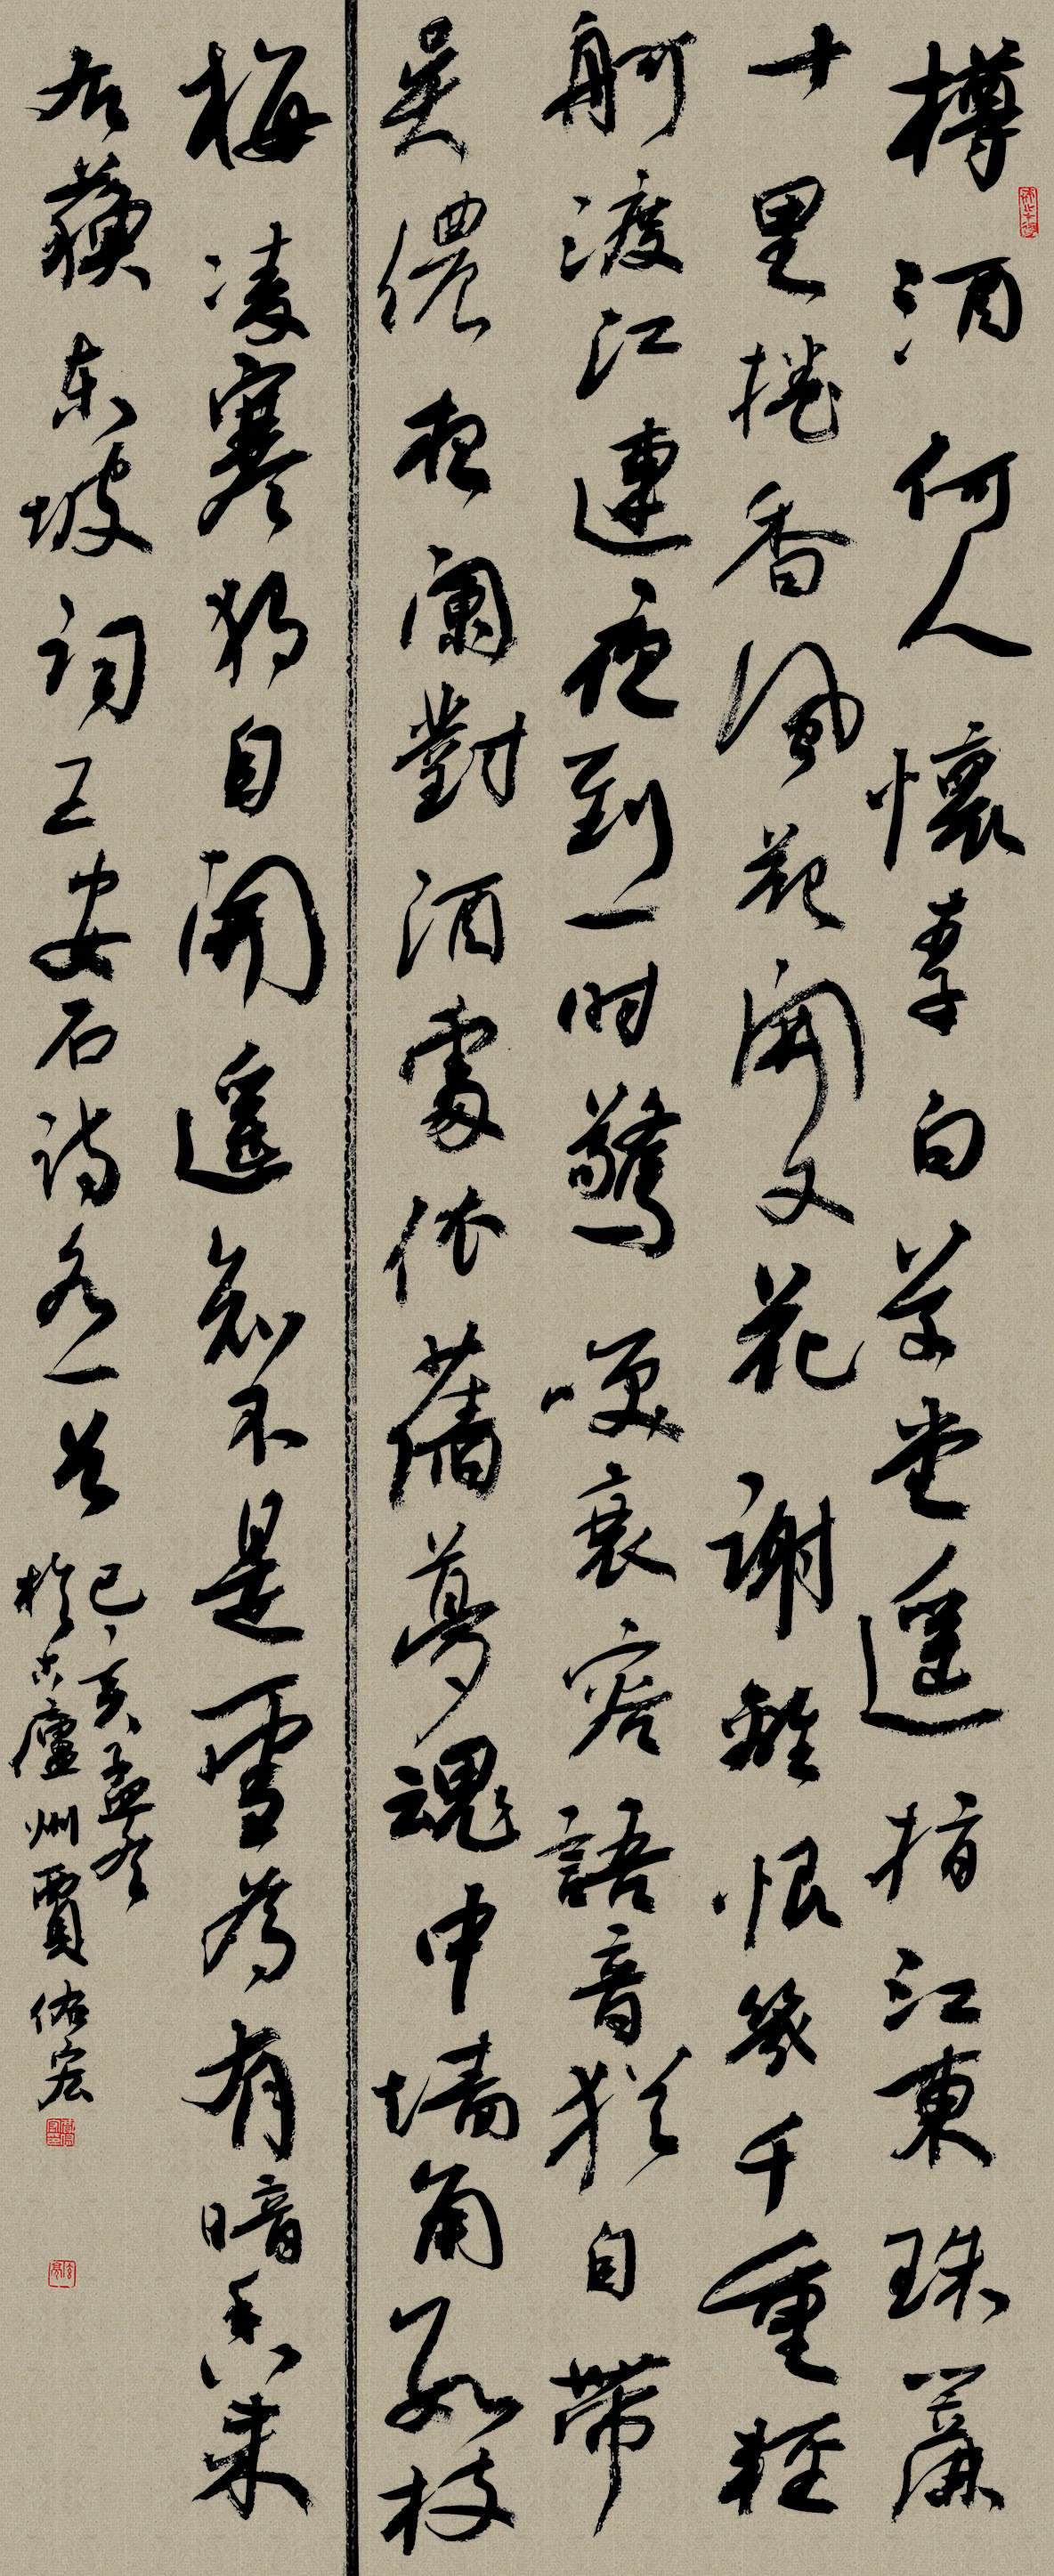 樽酒何人懷李白草堂遥指江東珠簾
十里捲香風花開又花謝離恨幾千重輕
舸渡江連夜到一時驚咲衰容語音猶自帶
吳儂夜闌對酒處依舊夢魂中墙角數枝
梅凌寒獨自開遥知不是雪為有暗香來
右蘇東坡詞王安石詩各一首
己亥孟冬
於古廬州賈佑宏